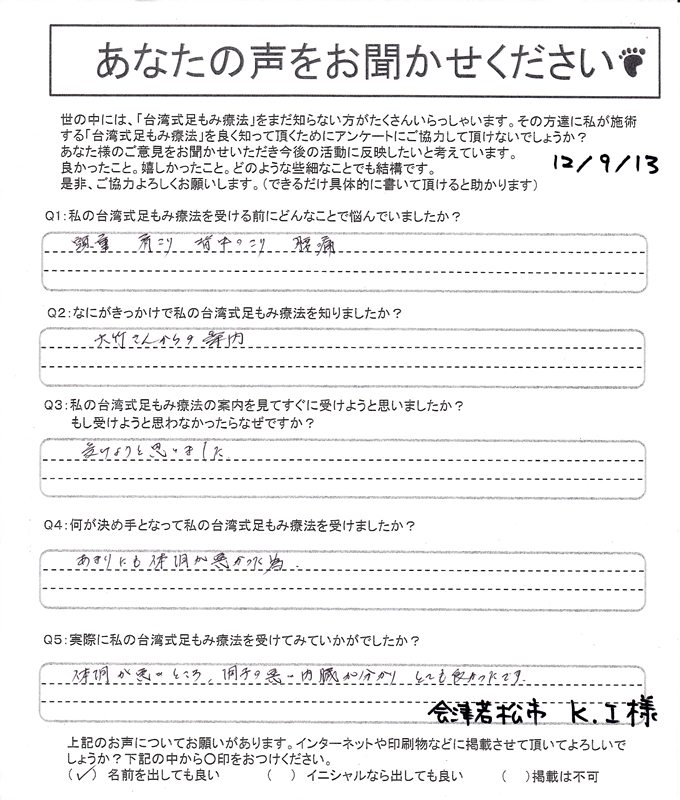 あなたの声をお聞かせください
世の中には、「台湾式足もみ療法」をまだ知らない方がたくさんいらっしゃいます。その方達に私が施術
する「台湾式足もみ療法」を良く知って頂くためにアンケートにご協力して頂けないでしょうか？
あなた様のご意見をお聞かせいただき今後の活動に反映したいと考えています。
良かったこと。嬉しかったこと。どのような些細なことでも結構です。
12/9/13
是非、ご協力よろしくお願いします。（できるだけ具体的に書いて頂けると助かります）
Q1：私の台湾式足もみ療法を受ける前にどんなことで悩んでいましたか？
頭重 肩こり 背中のこり 腰痛
Q2：なにがきっかけで私の台湾式足もみ療法を知りましたか？
大竹さんからの案内
Q3：私の台湾式足もみ療法の案内を見てすぐに受けようと思いましたか？
もし受けようと思わなかったらなぜですか？
受けようと思いました
Q4：何が決め手となって私の台湾式足もみ療法を受けましたか？
あまりにも体調が悪かった為．
Q5：実際に私の台湾式足もみ療法を受けてみていかがでしたか？
体調が悪いところ、調子の悪い内臓が分かり とても良かったです．
会津若松市 K.I様
上記のお声についてお願いがあります。インターネットや印刷物などに掲載させて頂いてよろしいで
しょうか？下記の中から○印をおつけください。
（✓）名前を出しても良い （ ）イニシャルなら出しても良い （ ）掲載は不可